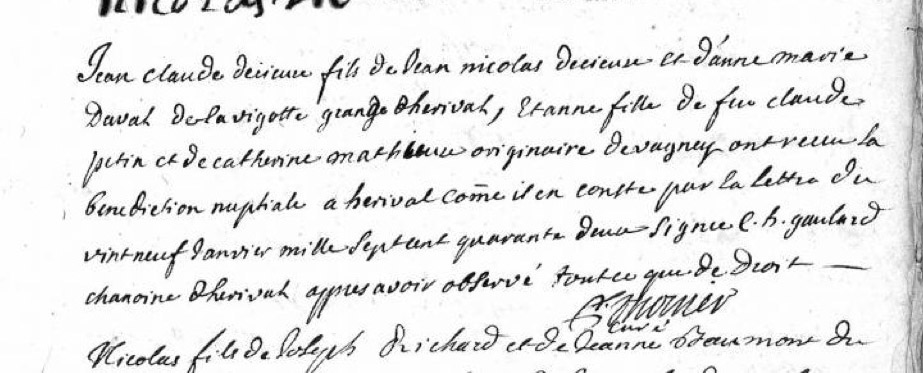 Jean claude decieux fils de Jean nicolas decieux et d'anne marie
Daval de la vigotte grange dherival, Et anne fille de feu claude
petin et de catherine mathieux originaire de vagney ont receu la
benediction nuptiale a herival come il en conste par la lettre du
vint neuf Janvier mille sept cent quarante deux signee C. h. gaulard
chanoine dherival appres avoir observé tout ce que de Droit —
curé
Nicolas fils de Joseph Richard et de Jeanne Beaumont du